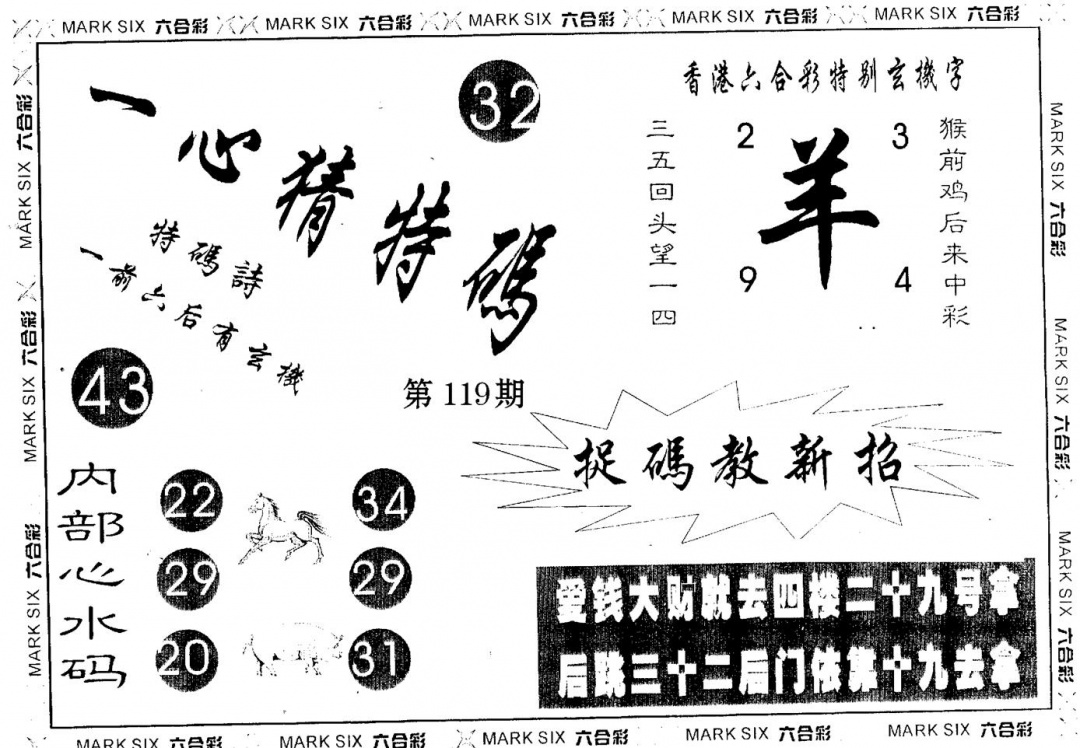 MARK SIX 六合彩 MARK SIX 六合彩 MARK SIX 六合彩 MARK SIX 六合彩 MARK SIX 六合彩
一心猜特碼
32
特碼詩
一前六后有玄機
43
第119期
香港六合彩特别玄機字
三五回头望一四
2 3
羊
9 4
猴前鸡后来中彩
捉碼教新招
内部心水码
22 34
29 29
20 31
愛钱大财就去四楼二十九号拿
后跳三十二后门依靠十九去拿
MARK SIX 六合彩
MARK SIX 六合彩
MARK SIX 六合彩
MARK SIX 六合彩
MARK SIX 六合彩
MARK SIX 六合彩
MARK SIX 六合彩 MARK SIX 六合彩 MARK SIX 六合彩 MARK SIX 六合彩 MARK SIX 六合彩